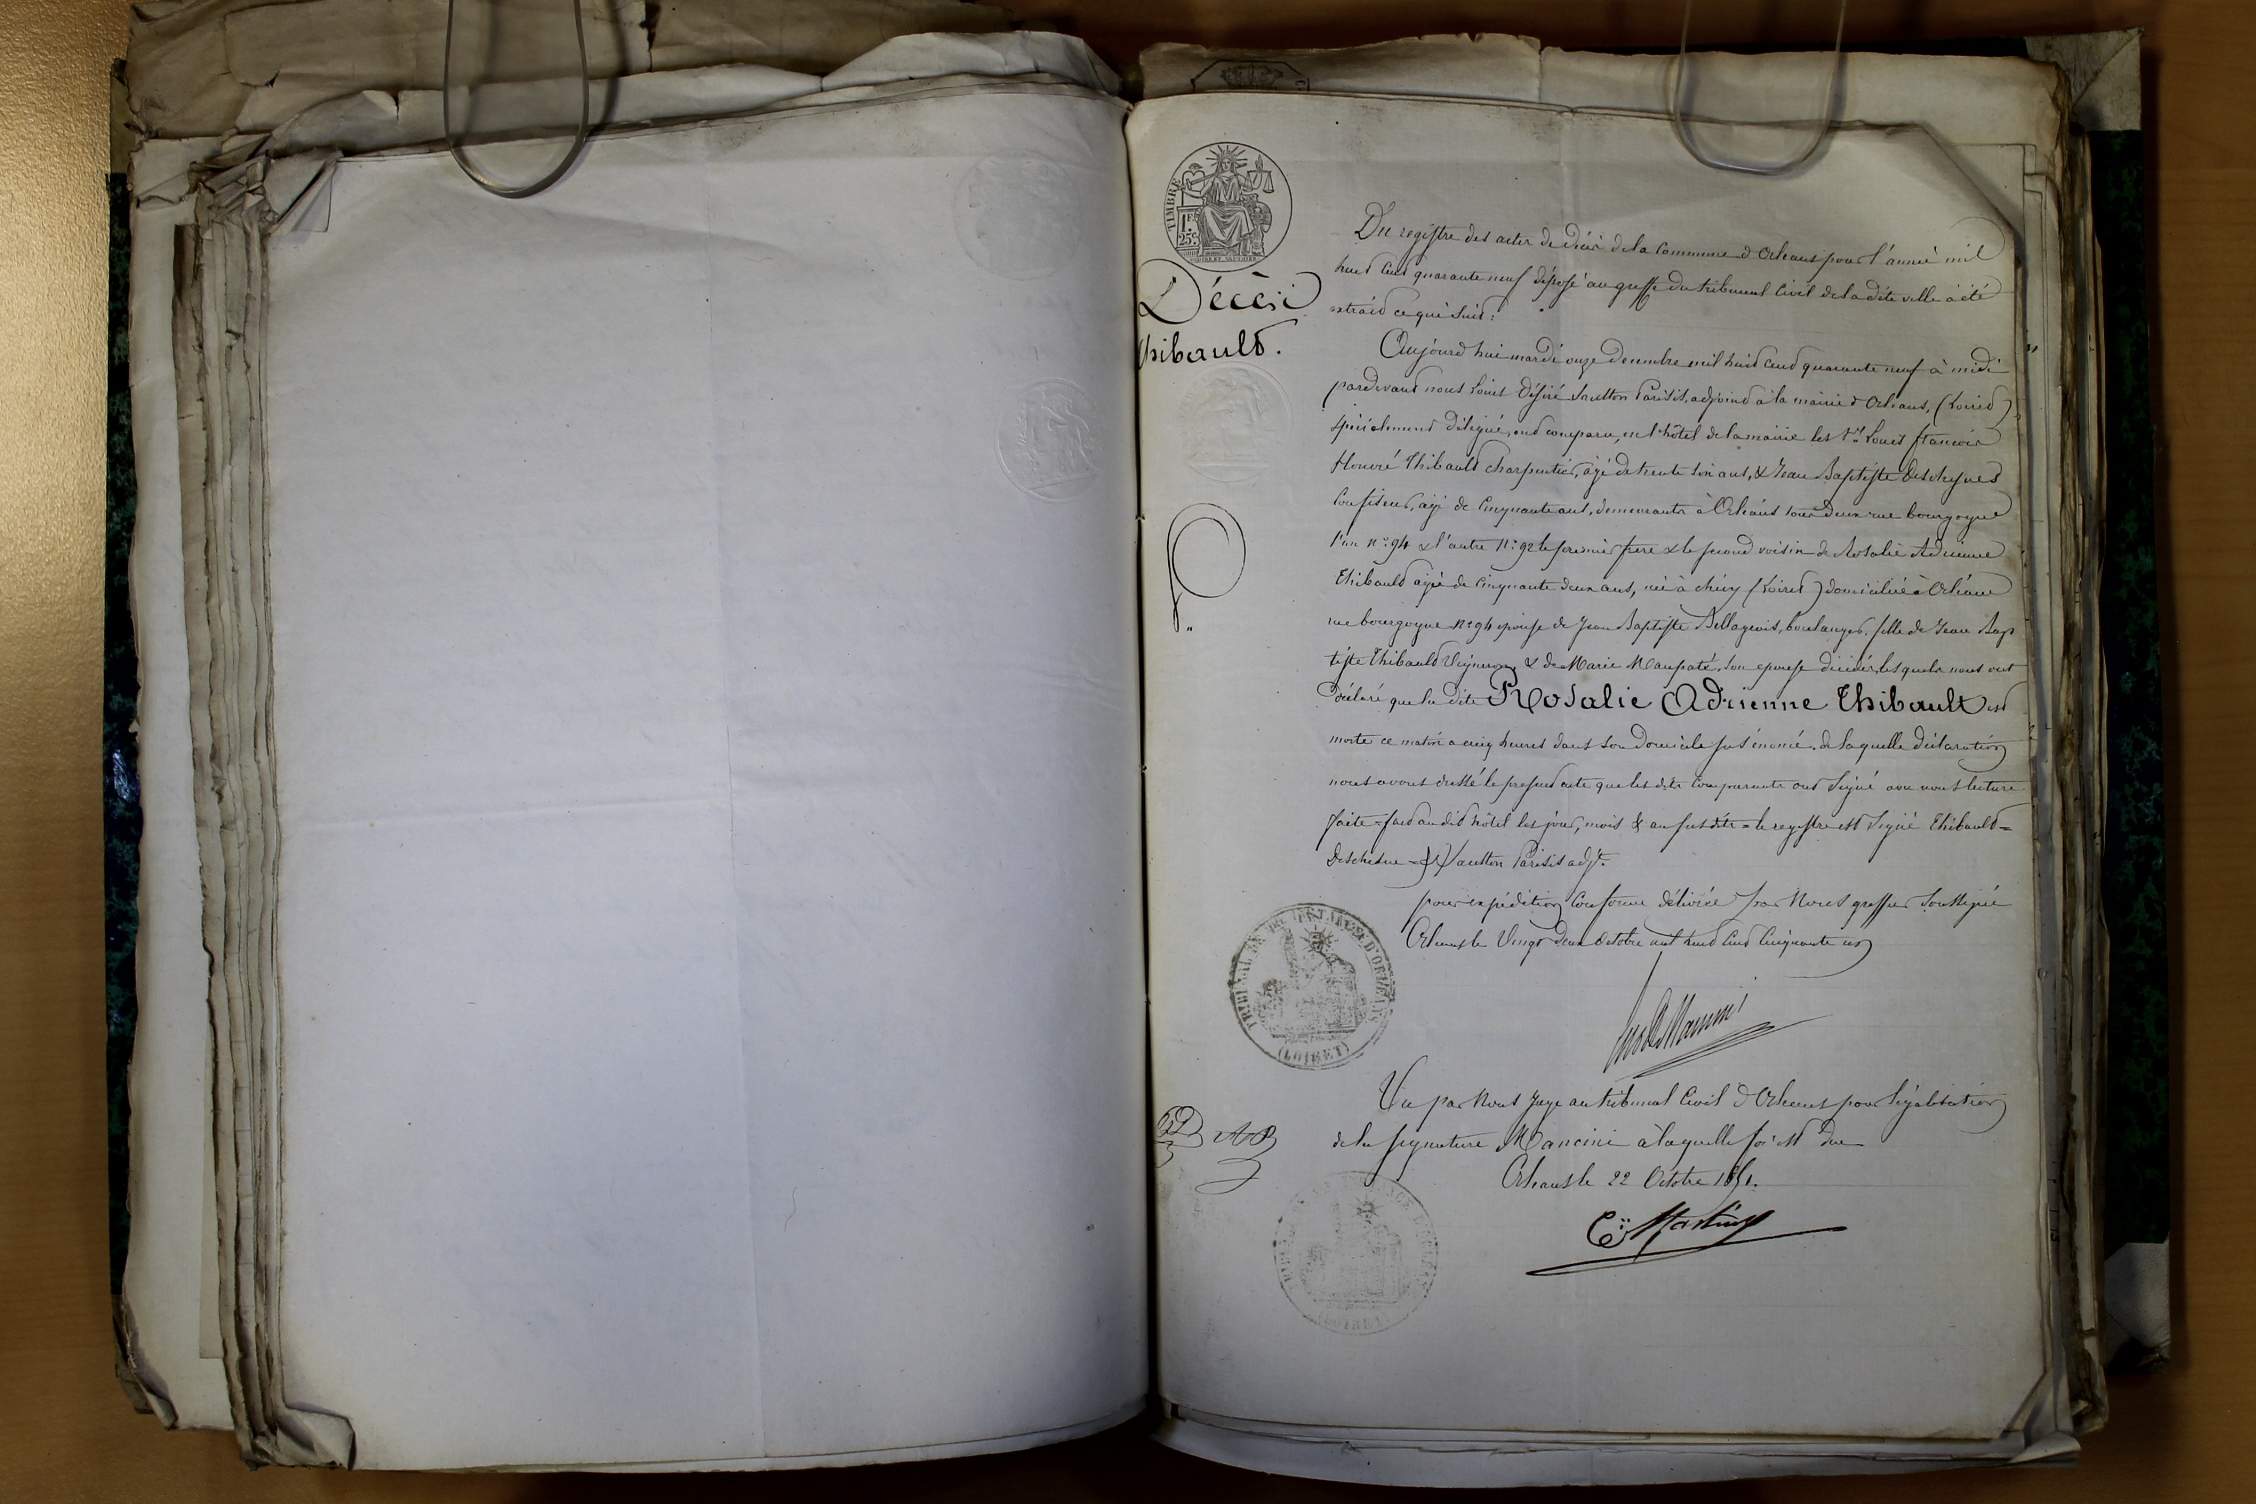 TIMBRE
1F.
25c.
Décès
Thibault.
Du registre des actes de décès de la Commune d'Orléans pour l'année mil
huit cent quarante neuf déposé au greffe du tribunal Civil de la dite ville a été
extrait ce qui suit :
Aujourd'hui mardi onze décembre mil huit cent quarante neuf à midi
pardevant nous Louis Désiré Parisis, adjoint à la mairie d'Orléans, (Loiret)
spécialement délégué, ont comparu, en l'hôtel de la mairie les Srs Louis François
Honoré Thibault charpentier, âgé de trente ans, & Jean Baptiste
Confiseur, âgé de Cinquante ans, demeurants à Orléans tous deux rue bourgogne
l'un No 94 & l'autre No 92 le premier frère & le second voisin de Rosalie Adrienne
Thibault agée de Cinquante deux ans, née à chécy (Loiret) domiciliée à Orléans
rue bourgogne No 94 epouse de Jean Baptiste Bellageois, boulanger, fille de Jean Bap
tiste Thibault Vigneron, & de Marie Maupaté, son epouse décédés, lesquels nous ont
déclaré que la dite Rosalie Adrienne Thibault est
morte ce matin a cinq heures dans son Domicile sus énoncé. de laquelle déclaration
nous avons dressé le present acte que les dits Comparants ont signé avec nous lecture
faite = fait audit hôtel les jour, mois & an susdits = le registre est signé Thibault =
Deschesne = Parisis adjt.
pour expédition Conforme délivrée par Nous greffier Soussigné
Orléans le Vingt deux octobre mil huit Cent Cinquante un
Mancini
TRIBUNAL DE 1ERE INSTANCE D'ORLEANS
(LOIRET)
Vu par Nous Juge au tribunal Civil d'Orléans pour légalisation
de la signature Mancini à laquelle foi est due
Orléans le 22 Octobre 1851.
Martin
(LOIRET)